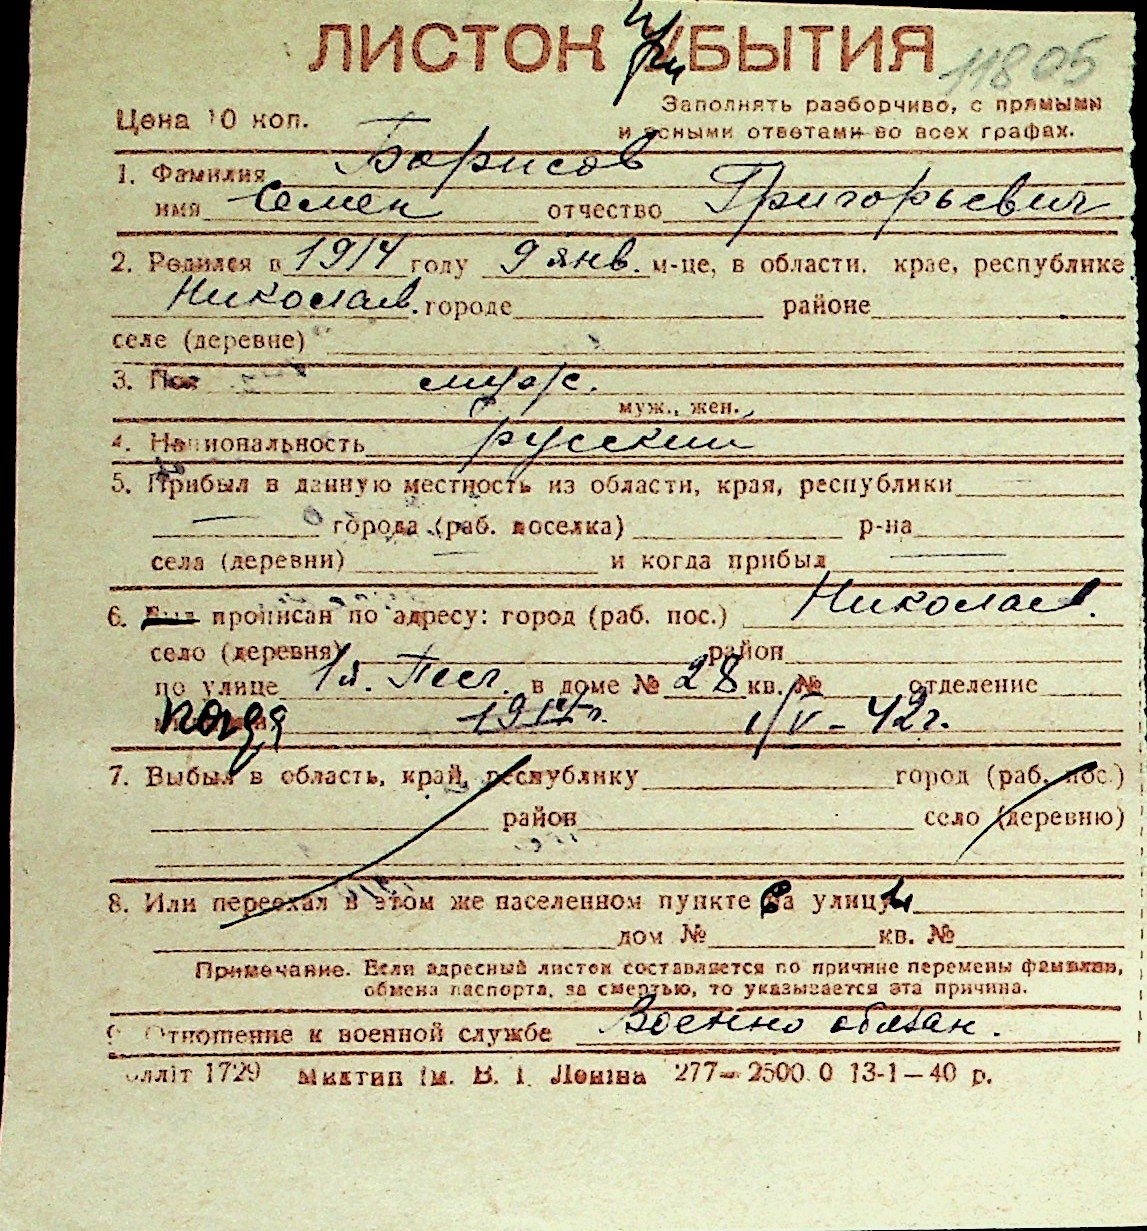 ЛИСТОК при УБЫТИЯ 11805
Цена 10 коп.
Заполнять разборчиво, с прямыми
и ясными ответами во всех графах.
1. Фамилия Борисов
имя Семен отчество Григорьевич
2. Родился в 1914 году 9 янв. м-це, в области, крае, республике
Николаев. городе районе
селе (деревне)
3. Пол муж.
муж., жен.
4. Национальность русский
5. Прибыл в данную местность из области, края, республики
города (раб. поселка) р-на
села (деревни) и когда прибыл
6. Был прописан по адресу: город (раб. пос.) Николаев.
село (деревня) район
по улице 1я. Песч. в доме № 28 кв. № отделение
когда 1/V-42г.
7. Выбыл в область, край, республику город (раб. пос.)
район село (деревню)
8. Или переехал в этом же населенном пункте с улицы
дом № кв. №
Примечание. Если адресный листок составляется по причине перемены фамилии,
обмена паспорта, за смертью, то указывается эта причина.
9. Отношение к военной службе Военно обязан.
1729 Миктип ім. В. І. Леніна 277—2500.0 13-1—40 р.